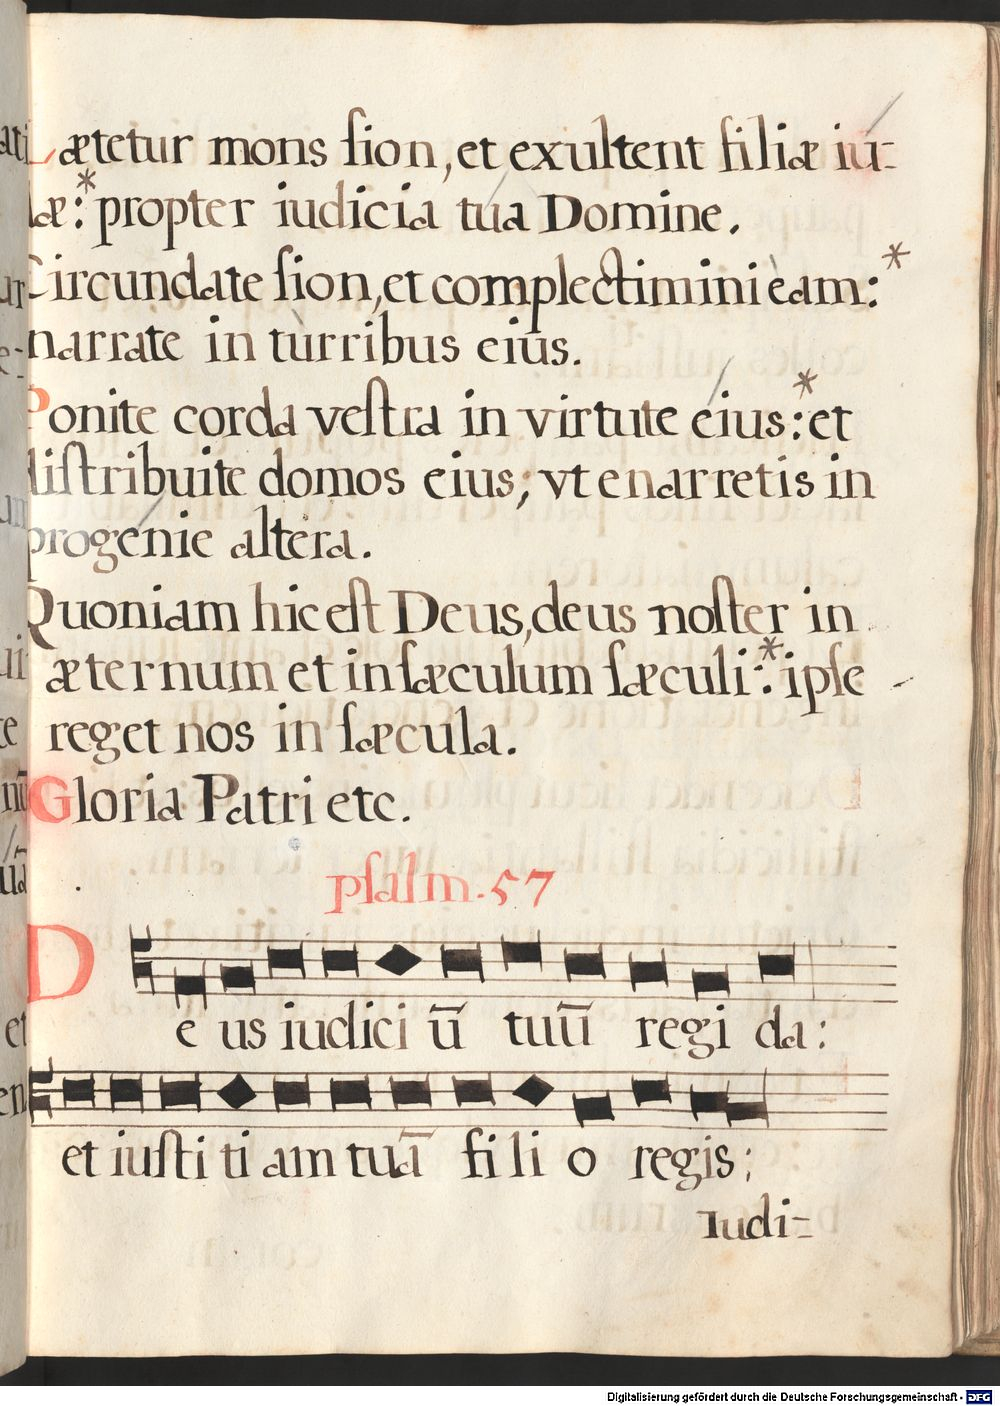 Lætetur mons ſion, et exultent filiæ iu-
dæ:* propter iudicia tua Domine.
Circundate ſion, et complectimini eam:*
narrate in turribus eius.
Ponite corda veſtra in virtute eius:* et
diſtribuite domos eius; vt enarretis in
progenie altera.
Quoniam hic eſt Deus, deus noſter in
æternum et in ſæculum ſæculi:* ipſe
reget nos in ſæcula.
Gloria Patri etc.
pſalm. 57
De us iudici ū tuū regi da:
et iuſti ti am tuā fi li o regis;
Iudi=
Digitalisierung gefördert durch die Deutsche Forschungsgemeinschaft - DFG